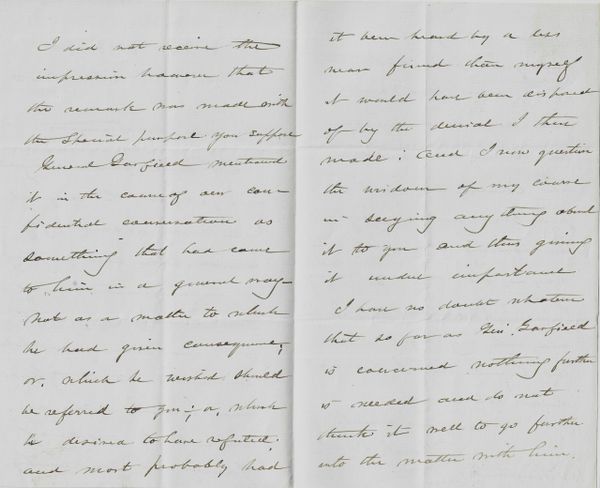 I did not receive the
impression however that
the remark was made with
the special purpose you suppose
General Garfield mentioned
it in the course of our con-
fidential conversation as
something that had come
to him in a general way—
not as a matter to which
he had given consequence;
or, which he wished should
be referred to you; or, which
he desired to have refuted.
and most probably had
it been heard by a less
near friend than myself
it would have been disposed
of by the denial I then
made; and I now question
the wisdom of my course
in saying anything about
it to you and thus giving
it undue importance
I have no doubt whatever
that so far as Gen'l Garfield
is concerned nothing further
is needed and do not
think it well to go further
into the matter with him.